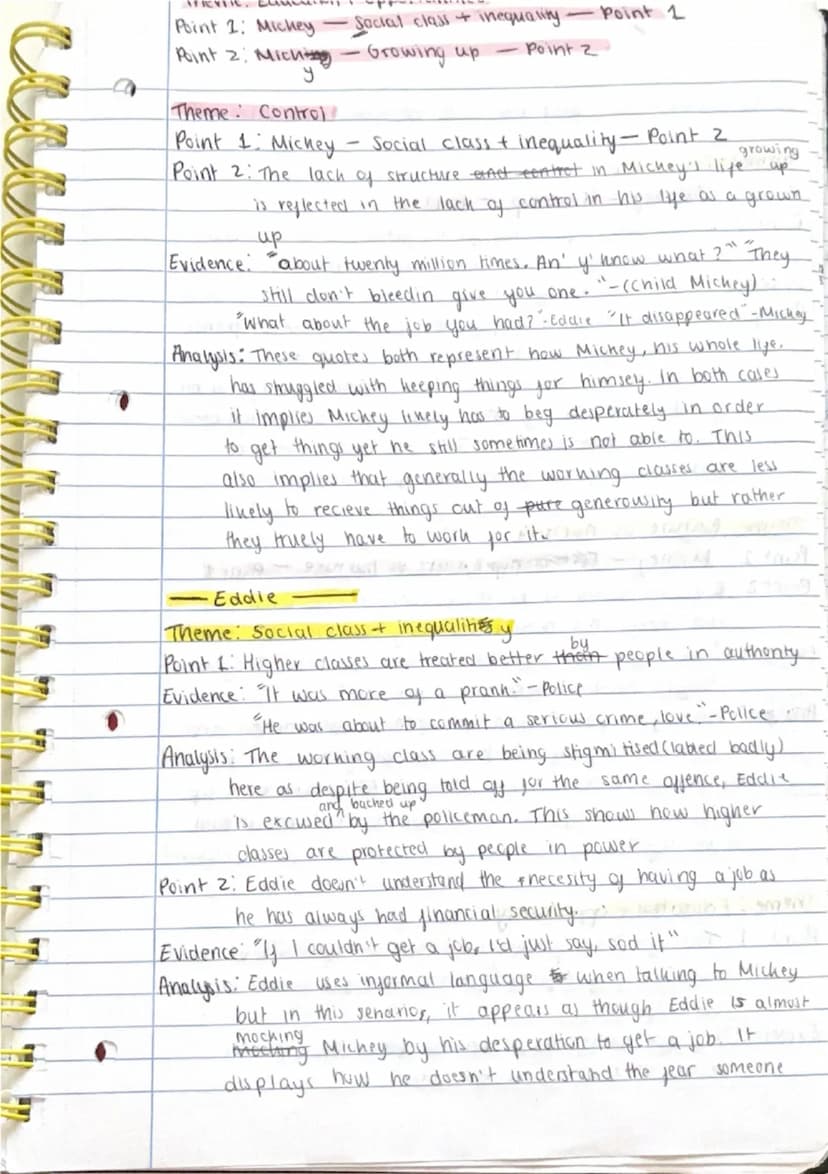 Point 1: Mickey — Social class + inequality — Point 1
Point 2: Mickey — Growing up — Point 2
Theme: Control
Point 1: Mickey — Social class + inequality — Point 2
Point 2: The lack of structure and control in Mickey's life growing up
is reflected in the lack of control in his life as a grown
up
Evidence: "about twenty million times. An' y' know what?" "They
still don't bleedin give you one." - (Child Mickey)
"What about the job you had?" - Eddie "It disappeared" - Mickey
Analysis: These quotes both represent how Mickey, his whole life.
has struggled with keeping things for himself. In both cases
it implies Mickey likely has to beg desperately in order
to get things yet he still sometimes is not able to. This
also implies that generally the working classes are less
likely to recieve things out of pure generousity but rather
they truely have to work for it.
— Eddie —
Theme: Social class + inequality
Point 1: Higher classes are treated better than by people in authority
Evidence: "It was more of a prank." - Police
"He was about to commit a serious crime, love." - Police
Analysis: The working class are being stigmitised (labled badly)
here as despite being told off for the same offence, Eddie
is excused and backed up by the policeman. This shows how higher
classes are protected by people in power
Point 2: Eddie doesn't understand the necesity of having a job as
he has always had financial security.
Evidence: "If I couldn't get a job, I'd just say, sod it"
Analysis: Eddie uses informal language when talking to Mickey
but in this senarios, it appears as though Eddie is almost
mocking Mickey by his desperation to get a job. It
displays how he doesn't understand the fear someone